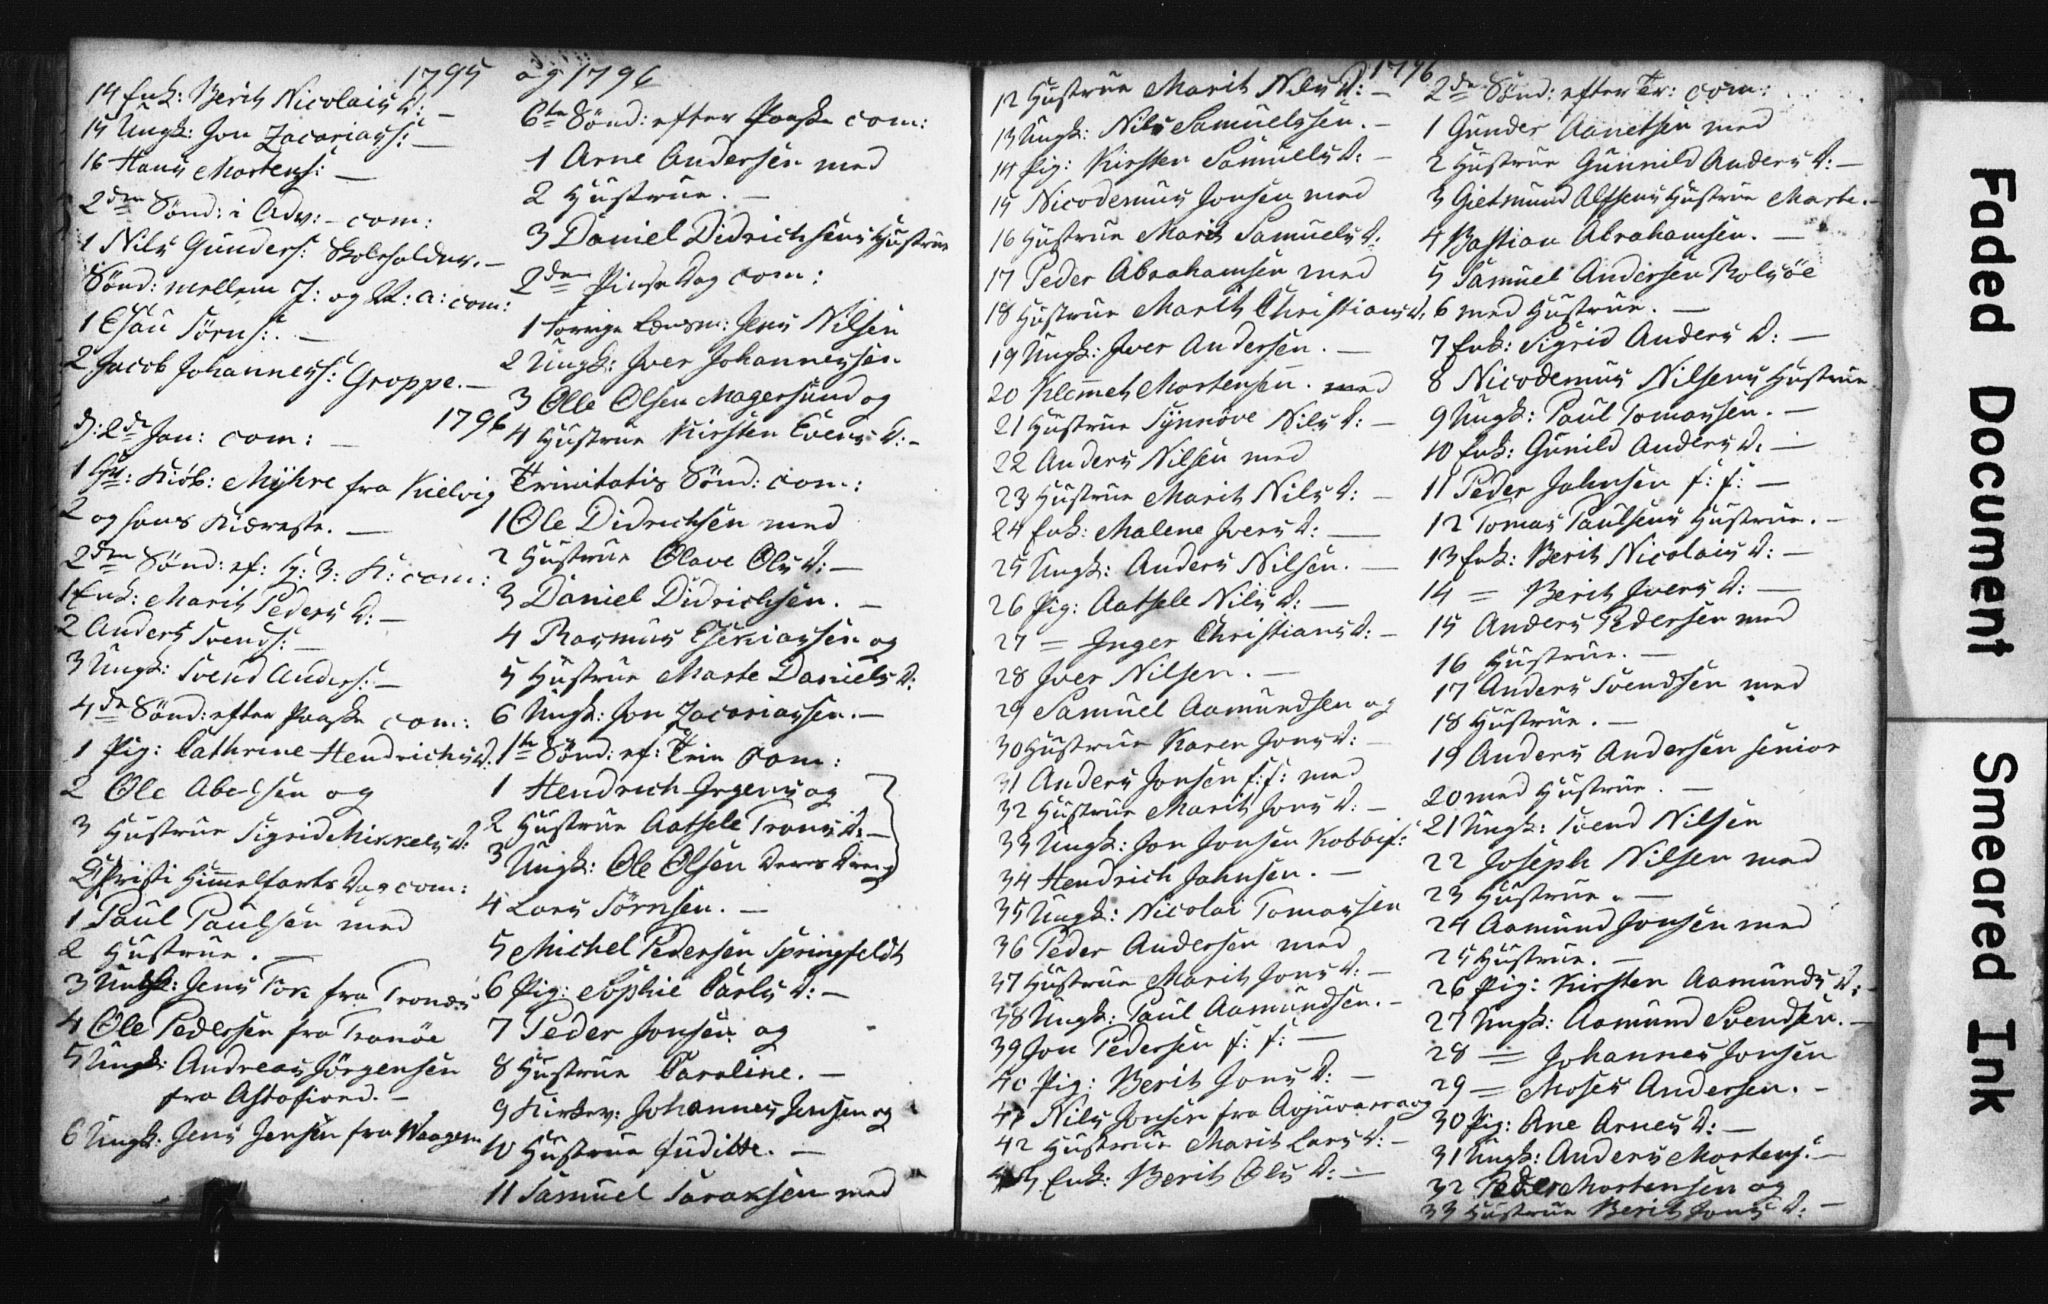 1795
14 Enk: Berit Nicolais D: –
15 Ungk: Jon Zacariass: –
16 Hans Mortens: –
2den Sønd: i Adv: – com:
1 Nils Gunders: Skoleholder. –
Sønd: mellem J: og N: a: com:
1 Esau Sørns: –
2 Jacob Johanness: Groppe. –
1796
d: 2de Jan: com: –
1 Hr: Kiøb: Myhre fra Kielvig
2 og hans Kiæreste. –
2den Sønd: ef: H: 3: K: com:
1 Enk: Marit Peders D: –
2 Anders Svends: –
3 Ungk: Svend Anders: –
4de Sønd: efter Paaske com:
1 Pig: Cathrine Hendrichs D:
2 Ole Abelsen og
3 Hustrue Sigrid Mikkels D:
Christi Himmelfarts Dag com:
1 Paul Paulsen med
2 Hustrue. –
3 Ungk: Jens Tør fra Tronæs
4 Ole Pedersen fra Tranøe
5 Ungk: Andreas Jörgensen
fra Astafiord. –
6 Ungk: Jens Jensen fra Waagen
og 1796
6te Sønd: efter Paaske com:
1 Arne Andersen med
2 Hustrue. –
3 Daniel Didrichsens Hustrue
2den Pinse Dag com:
1 forrige Lænsm: Jens Nilsen
2 Ungk: Iver Johannessen
3 Olle Olsen Magersund og
4 Hustrue Kirsten Evens D: –
Trinitatis Sønd: com:
1 Ole Didrichsen med
2 Hustrue Olave Ols D: –
3 Daniel Didrichsen. –
4 Rasmus Esekiassen og
5 Hustrue Marte Daniels D:
6 Ungk: Jon Zacariassen. –
1te Sønd: ef: Trin Com:
1 Hendrich Irgens og
2 Hustrue Aatsele Trons D: –
3 Ungk: Ole Olsen deres Dreng
4 Lars Sørnsen. –
5 Michel Pedersen Springfeldt
6 Pig: Sophie Carls D: –
7 Peder Jonsen og
8 Hustrue Caroline. –
9 Kirkev: Johannes Jensen og
10 Hustrue Juditte. –
11 Samuel Saraksen med
1796
12 Hustrue Marit Nils D: –
13 Ungk: Nils Samuelssen. –
14 Pig: Kirsten Samuels D: –
15 Nicodemus Jonsen med
16 Hustrue Marit Samuels D:
17 Peder Abrahamsen med
18 Hustrue Marit Christians D:
19 Ungk: Iver Andersen. –
20 Klemet Mortensen. med
21 Hustrue Synnöve Nils D: –
22 Anders Nilsen med
23 Hustrue Marit Nils D: –
24 Enk: Malene Ivers D: –
25 Ungk: Anders Nilsen. –
26 Pig: Aatsele Nils D: –
27 = Inger Christians D: –
28 Iver Nilsen. –
29 Samuel Aamundsen og
30 Hustrue Karen Jons D: –
31 Anders Jonsen f: f: med
32 Hustrue Marit Jons D: –
33 Ungk: Jon Jonsen Kobbif:
34 Hendrich Johnsen. –
35 Ungk: Nicolai Tomassen
36 Peder Andersen med
37 Hustrue Marit Jons D: –
38 Ungk: Paul Aamundsen. –
39 Jon Pedersen f: f: –
40 Pig: Berit Jons D: –
41 Nils Jonsen fra Avjuvarra og
42 Hustrue Marit Lars D: –
43 Enk: Berit Ols D: –
2de Sønd: efter Tr: com:
1 Gunder Aanetsen med
2 Hustrue Gunnild Anders D: –
3 Gietmund Alfsens Hustrue Marte. –
4 Bastian Abrahamsen. –
5 Samuel Andersen Rolsöe
6 med Hustrue. –
7 Enk: Sigrid Anders D: –
8 Nicodemus Nilsens Hustrue
9 Ungk: Paul Tomassen. –
10 Enk: Gunild Anders D: –
11 Peder Johnsen f: f: –
12 Tomas Paulsens Hustrue. –
13 Enk: Berit Nicolais D: –
14 = Berit Ivers D: –
15 Anders Pedersen med
16 Hustrue. –
17 Anders Svendsen med
18 Hustrue. –
19 Anders Andersen senior
20 med Hustrue. –
21 Ungk: Svend Nilsen
22 Joseph Nilsen med
23 Hustrue. –
24 Aamund Jonsen med
25 Hustrue. –
26 Pig: Kirsten Aamunds D: –
27 Ungk: Aamund Svendsen. –
28 = Johannes Jonsen
29 = Moses Andersen. –
30 Pig: Ane Arnes D: –
31 Ungk: Anders Mortens: –
32 Peder Mortensen og
33 Hustrue Berit Jons D: –
Faded Document
Smeared Ink